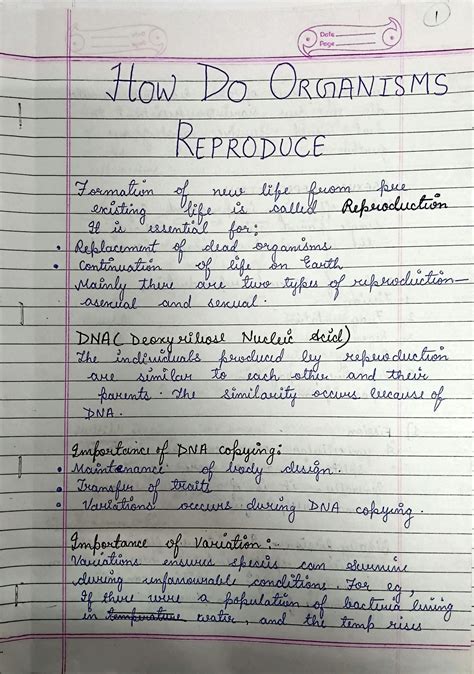 1
Date
Page
HOW DO ORGANISMS
REPRODUCE
Formation of new life from pre
existing life is called Reproduction
It is essential for:
• Replacement of dead organisms
• Continuation of life on Earth
Mainly there are two types of reproduction—
asexual and sexual.
DNA (Deoxyribose Nucleic Acid)
The individuals produced by reproduction
are similar to each other and their
parents. The similarity occurs because of
DNA.
Importance of DNA copying:
• Maintenance of body design.
• Transfer of traits
• Variations occurs during DNA copying.
Importance of Variation:-
Variations ensures species can survive
during unfavourable conditions. For eg,
If there were a population of bacteria living
in temperature water, and the temp rises